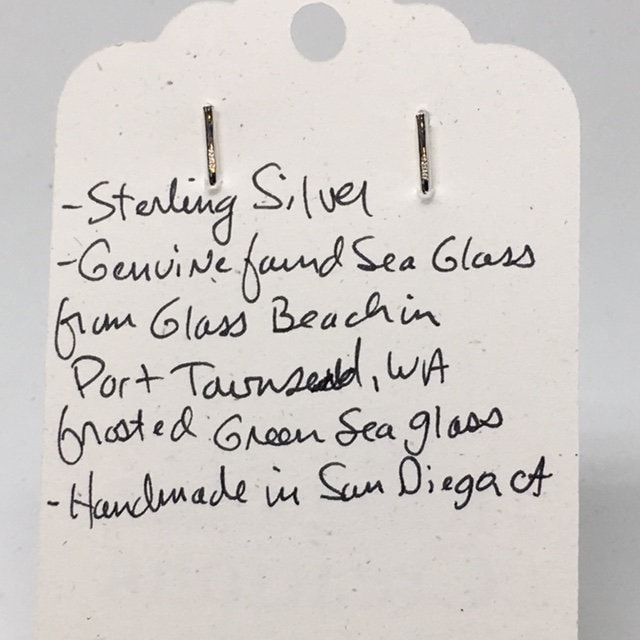 -Sterling Silver
-Genuine found Sea Glass
from Glass Beach in
Port Townsend, WA
frosted Green Sea glass
-Handmade in San Diego CA